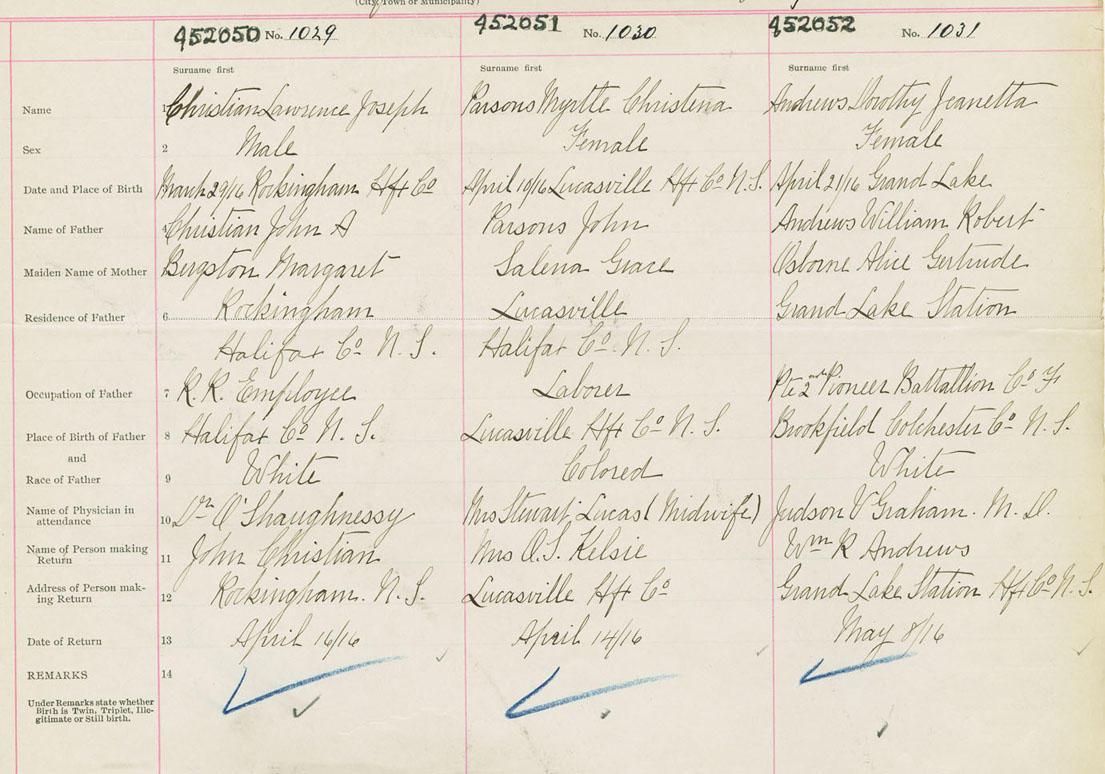 (City, Town or Municipality)
452050 No. 1029 452051 No. 1030 452052 No. 1031
Surname first Surname first Surname first
Name 1 Christian Lawrence Joseph Parsons Myrtle Christena Andrews Dorothy Jeanetta
Sex 2 Male Female Female
Date and Place of Birth March 29/16 Rockingham Hfx Co April 10/16 Lucasville Hfx Co N.S. April 21/16 Grand Lake
Name of Father 4 Christian John A Parsons John Andrews William Robert
Maiden Name of Mother Bergston Margaret Salena Grace Osborne Alice Gertrude
Residence of Father 6 Rockingham Lucasville Grand Lake Station
Halifax Co N. S. Halifax Co N. S.
Occupation of Father 7 R. R. Employee Laborer Pte 2nd Pioneer Battallion Co F
Place of Birth of Father 8 Halifax Co N. S. Lucasville Hfx Co N. S. Brookfield Colchester Co N. S.
and
Race of Father 9 White Colored White
Name of Physician in attendance 10 Dr O'Shaughnessy Mrs Stewart Lucas (Midwife) Judson V Graham. M. D.
Name of Person making Return 11 John Christian Mrs A. S. Kelsie Wm R Andrews
Address of Person making Return 12 Rockingham. N. S. Lucasville Hfx Co Grand Lake Station Hfx Co N. S.
Date of Return 13 April 16/16 April 14/16 May 8/16
REMARKS 14
Under Remarks state whether
Birth is Twin, Triplet, Ille-
gitimate or Still birth.